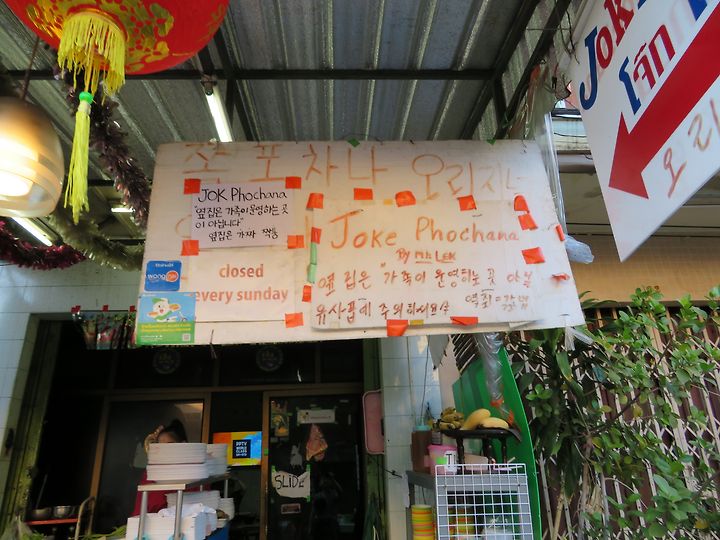 쪽 포차나 오리지널
JOK Phochana
"옆집은 가족이 운영하는 곳
이 아닙니다"
옆집은 가짜 짝퉁
closed
every sunday
Joke Phochana
By Mr. Lek
옆 집은 가족이 운영하는 곳 아님
유사품에 주의하세요
wongnai
SLIDE
PPTV
WORLD
CLASS
โจ๊ก
오리